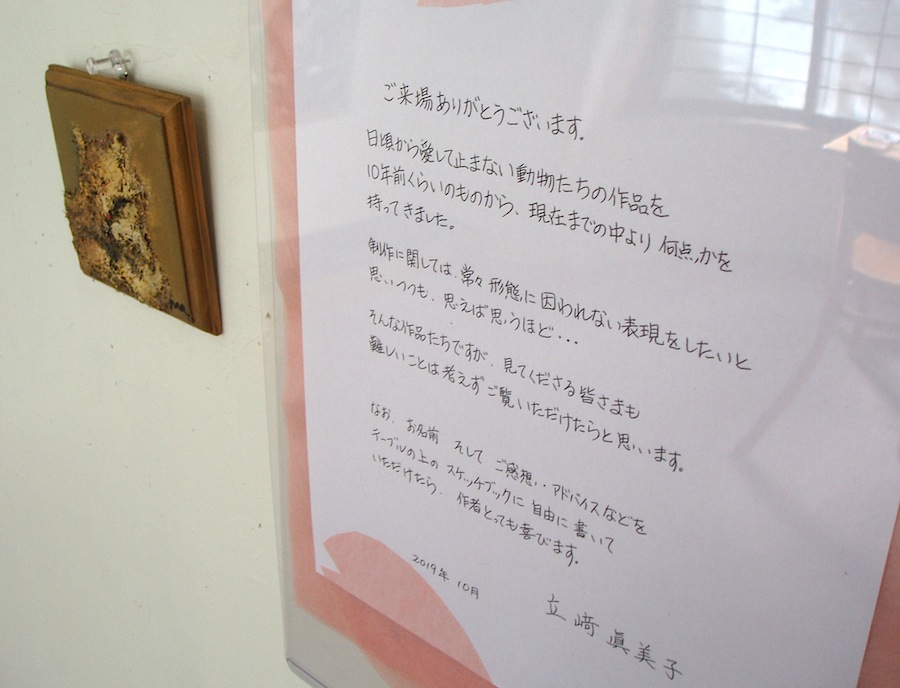 ご来場ありがとうございます。
日頃から愛して止まない動物たちの作品を
10年前くらいのものから、現在までの中より何点かを
持ってきました。
制作に関しては、常々形態に因われない表現をしたいと
思いつつも、思えば思うほど・・・
そんな作品たちですが、見てくださる皆さまも
難しいことは考えずご覧いただけたらと思います。
なお、お名前 そして ご感想、・アドバイスなどを
テーブルの上の スケッチブックに 自由に 書いて
いただけたら、作者とっても喜びます。
2019年 10月
立﨑 眞美子